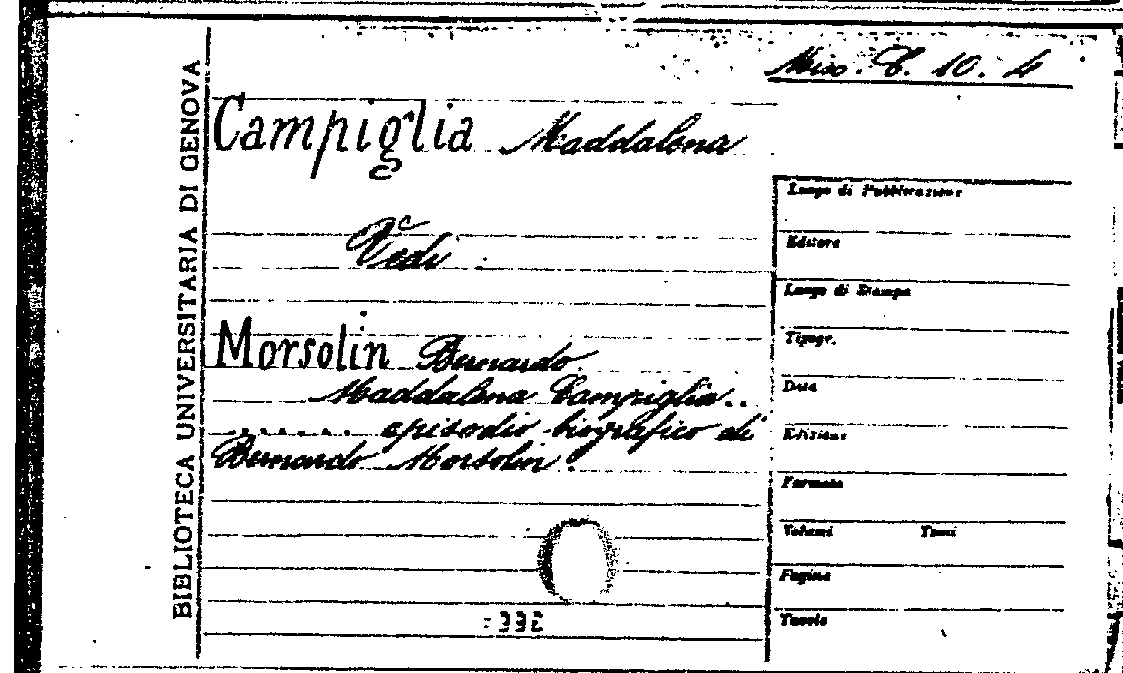 Misc. C. 10. 4
BIBLIOTECA UNIVERSITARIA DI GENOVA
Campiglia Maddalena
Vedi:
Morsolin Bernardo.
Maddalena Campiglia..
....... episodio biografico di
Bernardo Morsolin.
Luogo di Pubblicazione
Editore
Luogo di Stampa
Tipogr.
Data
Edizione
Formato
Volumi Tomi
Pagine
Tavole